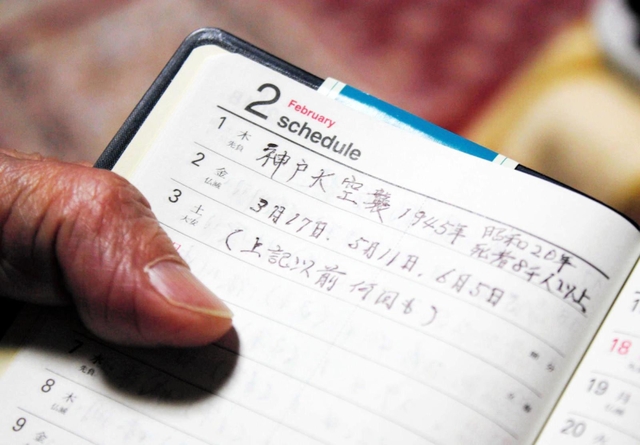 2 February
schedule
1 木 先負
神戸大空襲 1945年 昭和20年
死者8千人以上
2 金 仏滅
3月17日、5月11日、6月5日
3 土 大安
(上記以前何回も)
7 水 先負
8 木 仏滅
9 金
18
19 月
20